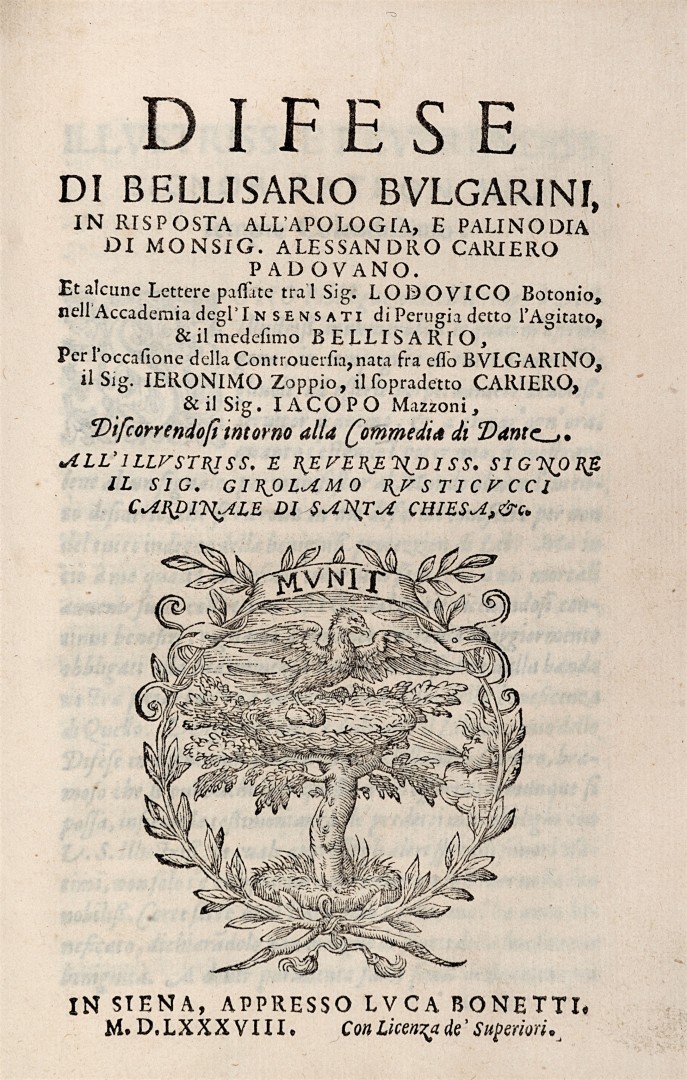 DIFESE
DI BELLISARIO BVLGARINI,
IN RISPOSTA ALL'APOLOGIA, E PALINODIA
DI MONSIG. ALESSANDRO CARIERO
PADOVANO.
Et alcune Lettere paſſate tra'l Sig. LODOVICO Botonio,
nell'Accademia degl'INSENSATI di Perugia detto l'Agitato,
& il medeſimo BELLISARIO,
Per l'occaſione della Controuerſia, nata fra eſſo BVLGARINO,
il Sig. IERONIMO Zoppio, il ſopradetto CARIERO,
& il Sig. IACOPO Mazzoni,
Diſcorrendoſi intorno alla Commedia di Dante.
ALL'ILLVSTRISS. E REVERENDISS. SIGNORE
IL SIG. GIROLAMO RVSTICVCCI
CARDINALE DI SANTA CHIESA, &c.
MVNIT
IN SIENA, APPRESSO LVCA BONETTI.
M. D. LXXXVIII. Con Licenza de' Superiori.